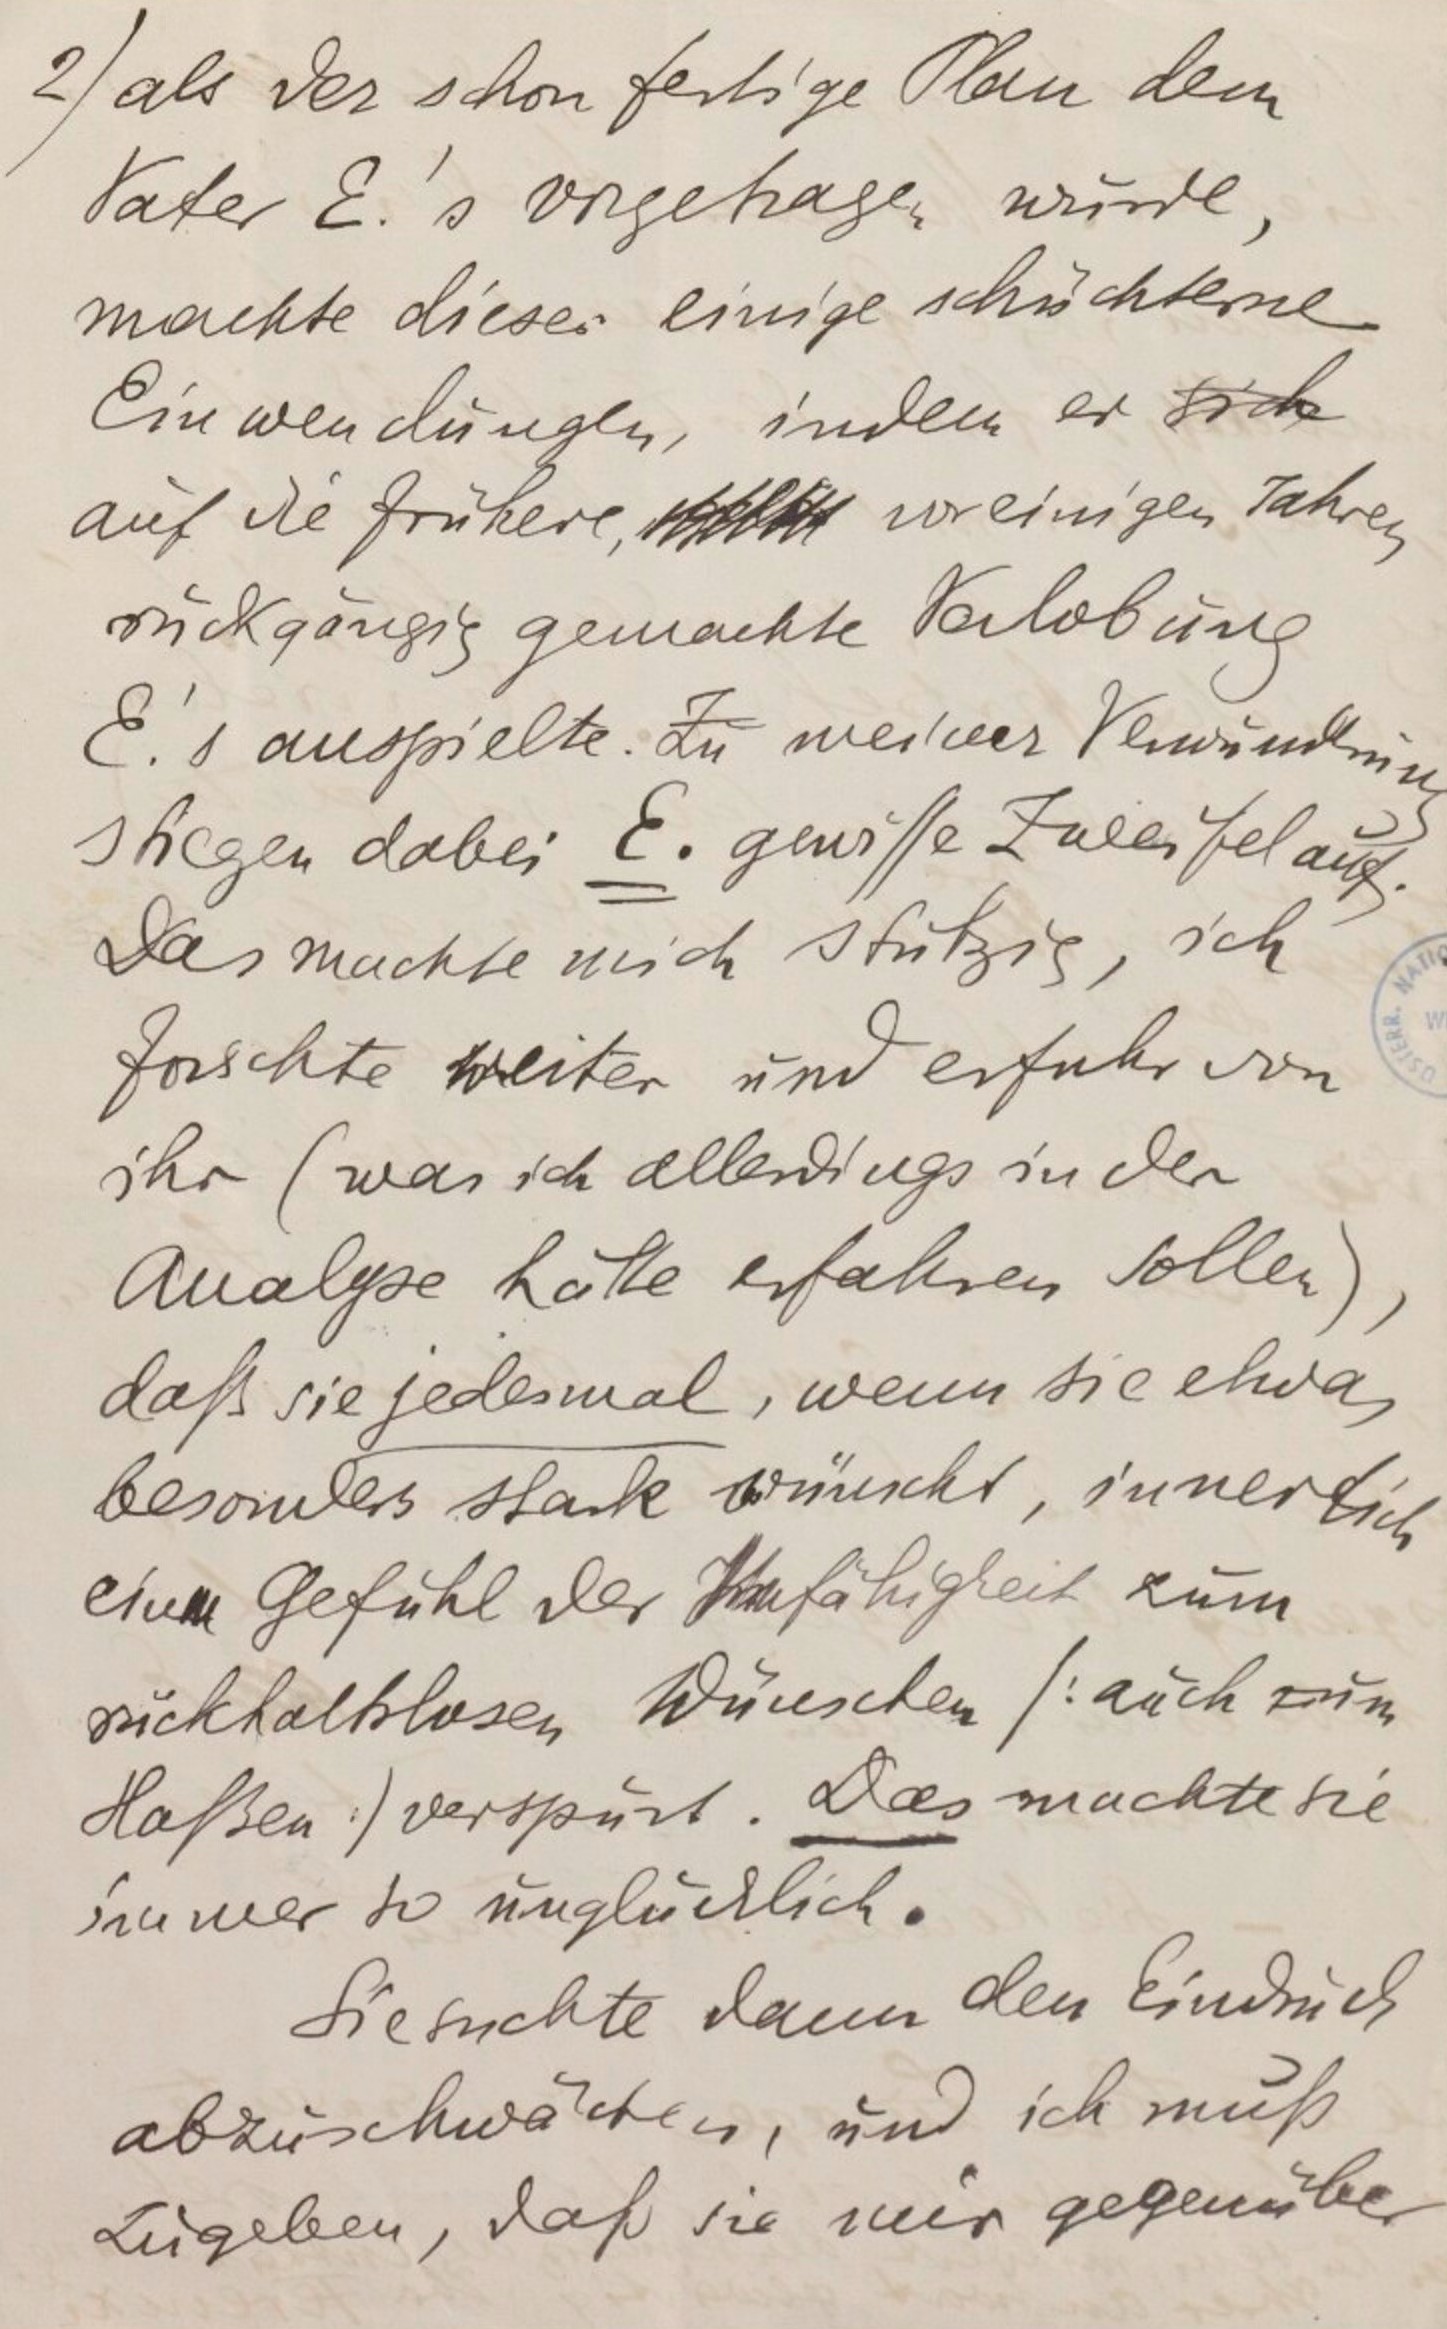 2) als der schon fertige Plan dem
Vater E.'s vorgetragen wurde,
machte dieser einige schüchterne
Einwendungen, indem er sich
auf die frühere, vor einigen Jahren
rückgängig gemachte Verlobung
E.'s anspielte. Zu meiner Verwunderung
stiegen dabei E. gewisse Zweifel auf.
Das machte mich stutzig, ich
forschte weiter und erfuhr von
ihr (was ich allerdings in der
Analyse hätte erfahren sollen),
daß sie jedesmal, wenn sie etwas
besonders stark wünscht, innerlich
ein Gefühl der Unfähigkeit zum
rückhaltslosen Wünschen /: auch zum
Haßen :/ verspürt. Das machte sie
immer so unglücklich.
Sie suchte dann den Eindruck
abzuschwächen, und ich muß
zugeben, daß sie mir gegenüber
ÖSTERR. NATIO
W